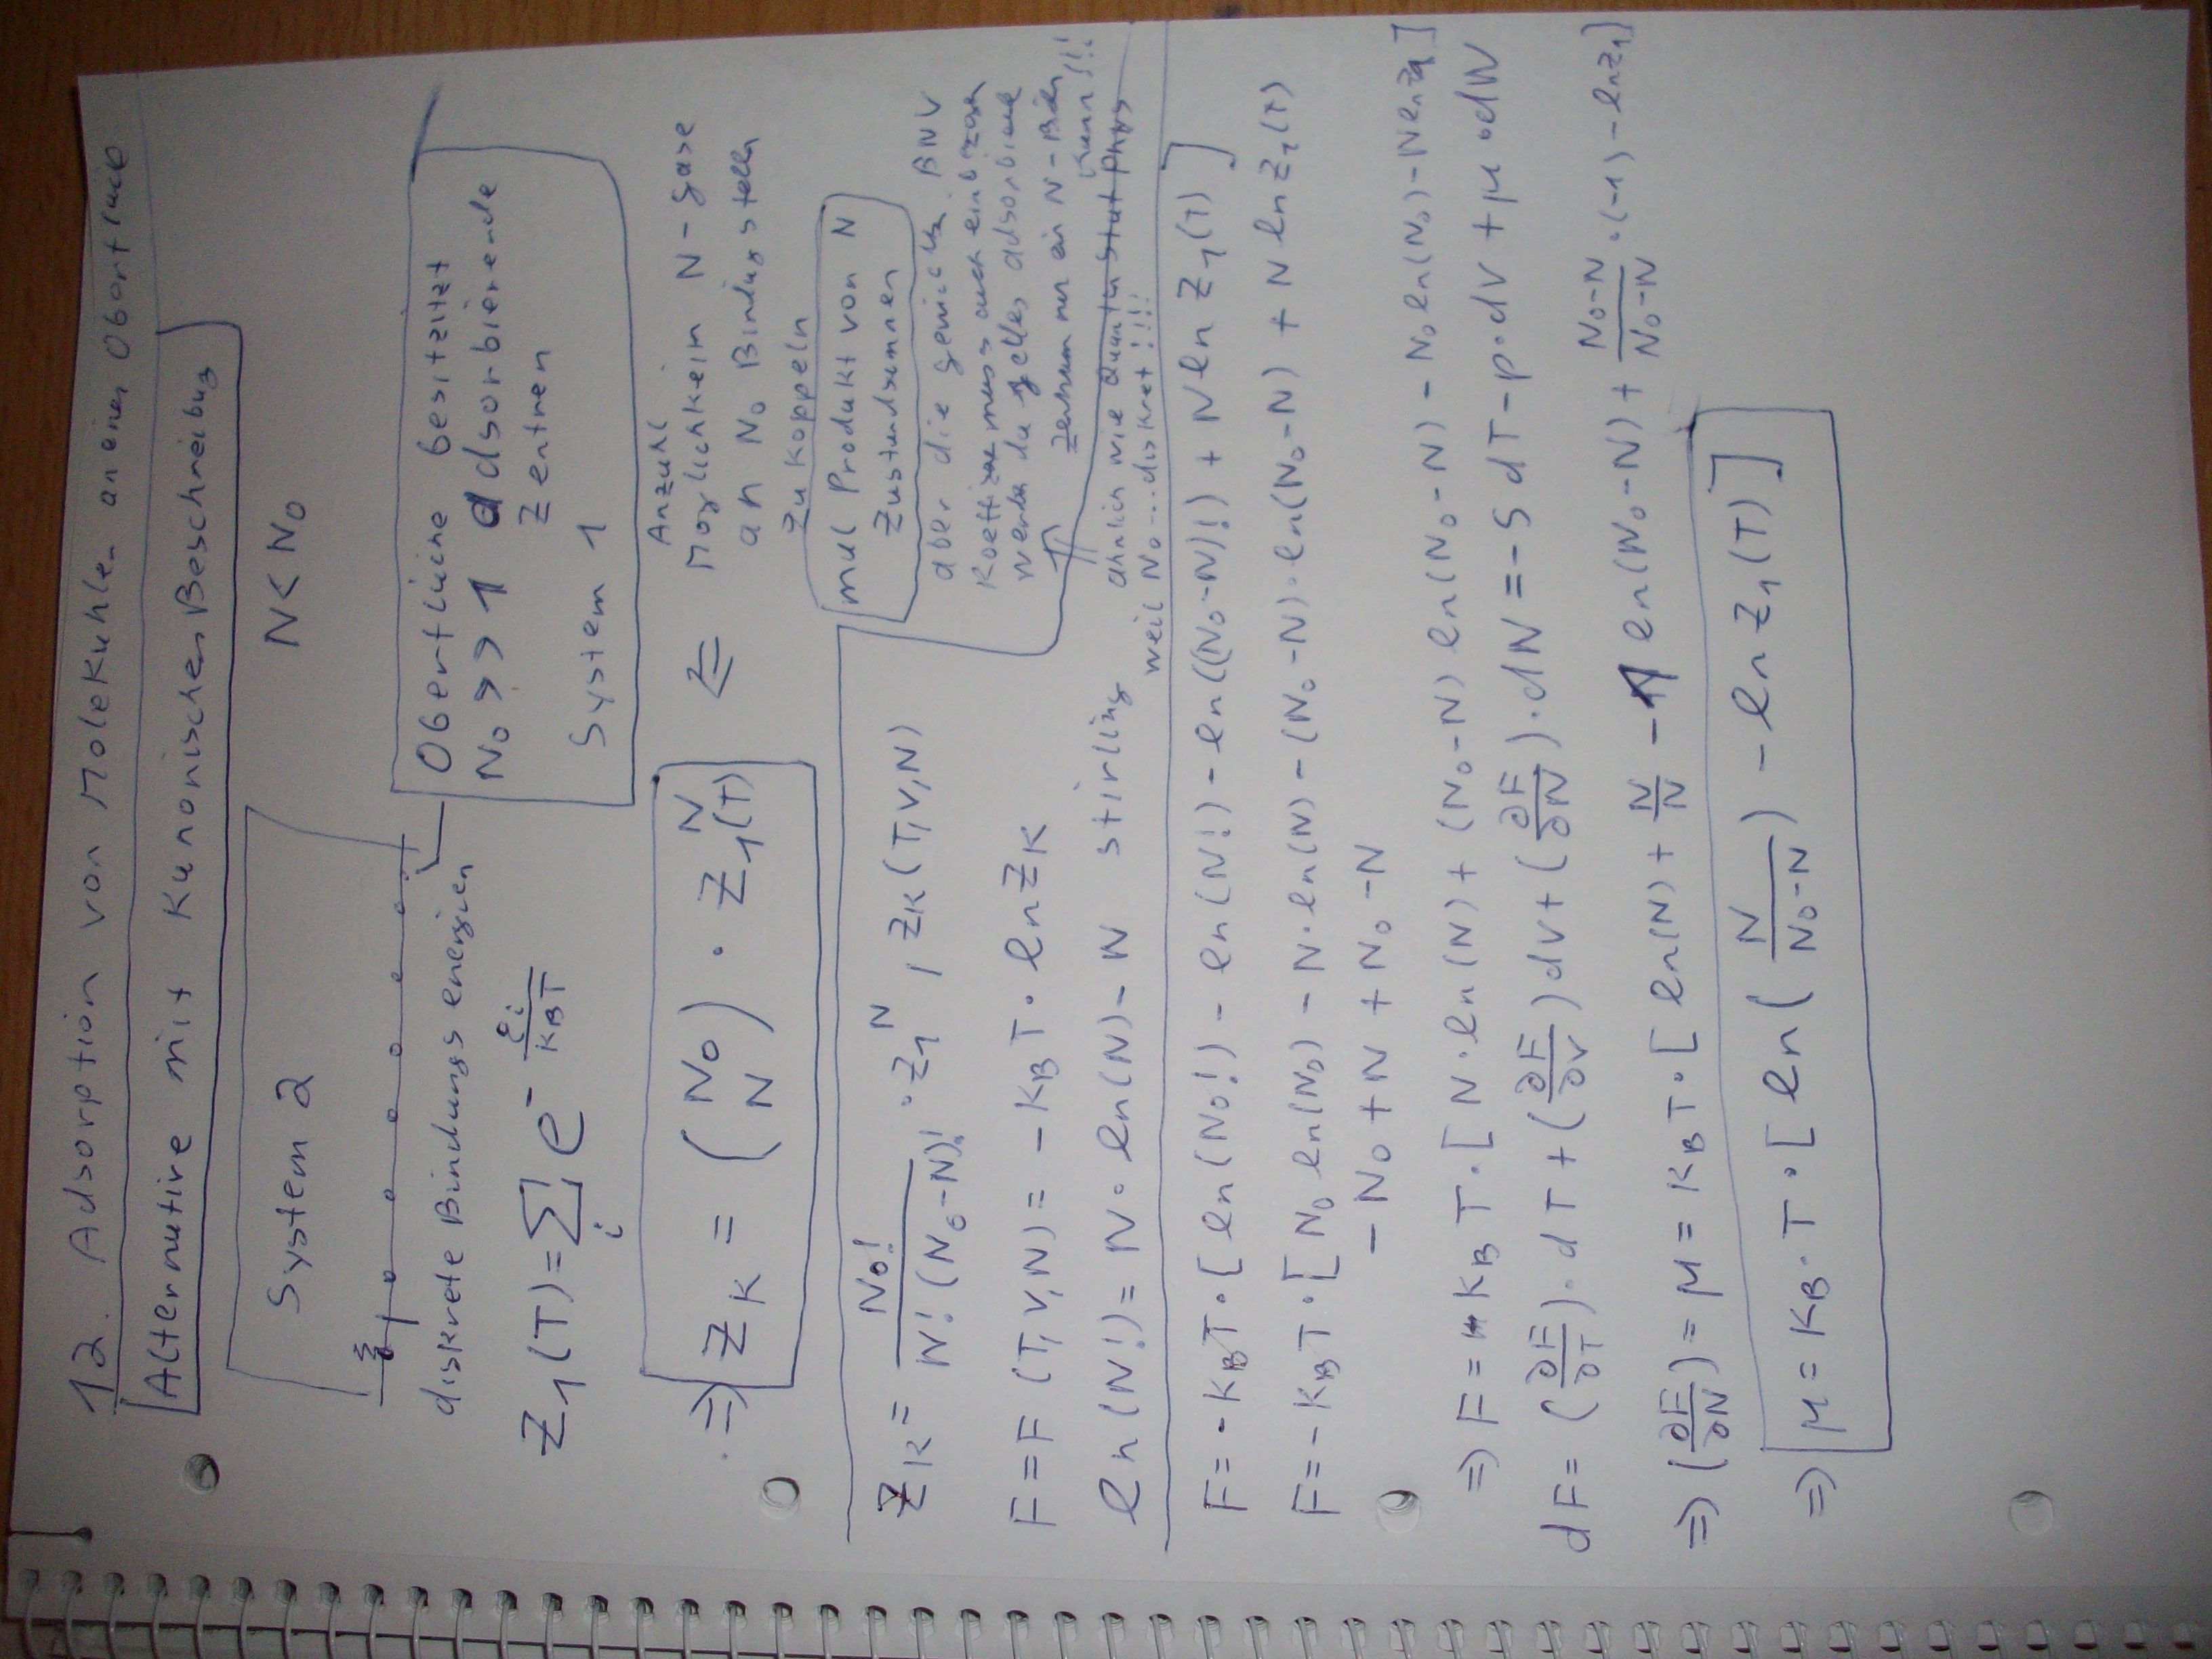 12. Adsorption von Molekühlen an einer Oberfläche
Alternative mit Kanonischen Beschreibung
System 2
N < N₀
Oberfläche besitzt
N₀ >> 1 adsorbierende
Zentren
System 1
diskrete Bindungsenergien
Z₁(T) = Σᵢ e^(-εᵢ/(K_B T))
⇒ Z_K = (N₀ N) · Z₁^N(T)
⇐ Anzahl
Möglichkein N-Gase
an N₀ Bindungsstelln
zu koppeln
mal Produkt von N
Zustandsummen
aber die
muss auch
werden da jedes adsorbierende
Zentrum nur ein N-
kann!!!
ähnlich wie Quanten Stat Phys
weil N₀ ... diskret !!!!
Z_K = N₀!/(N!(N₀-N)!) · Z₁^N , Z_K(T,V,N)
F = F(T,V,N) = -K_B T · ln Z_K
ln(N!) = N · ln(N) - N stirling
F = -K_B T · [ln(N₀!) - ln(N!) - ln((N₀-N)!) + N ln Z₁(T)]
F = -K_B T · [N₀ ln(N₀) - N · ln(N) - (N₀-N) · ln(N₀-N) + N ln Z₁(T)
- N₀ + N + N₀ - N
⇒ F = K_B T · [N · ln(N) + (N₀-N) ln(N₀-N) - N₀ ln(N₀) - N ln Z₁]
dF = (∂F/∂T) · dT + (∂F/∂V) dV + (∂F/∂N) · dN = -S dT - p · dV + μ · dN
⇒ (∂F/∂N) = μ = K_B T · [ln(N) + N/N - 1 ln(N₀-N) + (N₀-N)/(N₀-N) · (-1) - ln Z₁]
⇒ μ = K_B · T · [ln(N/(N₀-N)) - ln Z₁(T)]